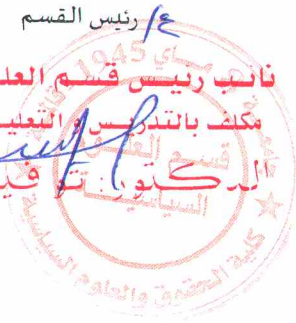 ع/ رئيس القسم
نائب رئيس قسم العلـ
مكلف بالتدريس و التعليـ
الدكتور: توفيـ
قسم العلوم
السياسية
كلية الحقوق والعلوم السياسية
1945 مـــاي